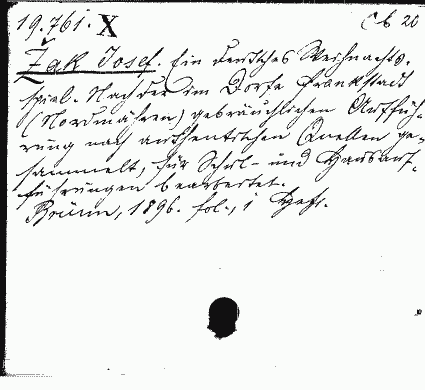 19.761. X Cb 20
Žak Josef. Ein deutsches Weihnachts-
spiel. Nach der im Dorfe Frankstadt
(Nordmähren) gebräuchlichen Auffüh-
rung nach authentischen Quellen ge-
sammelt, für Schul- und Hausauf-
führungen bearbeitet.
Brünn, 1896. fol., 1 Heft.